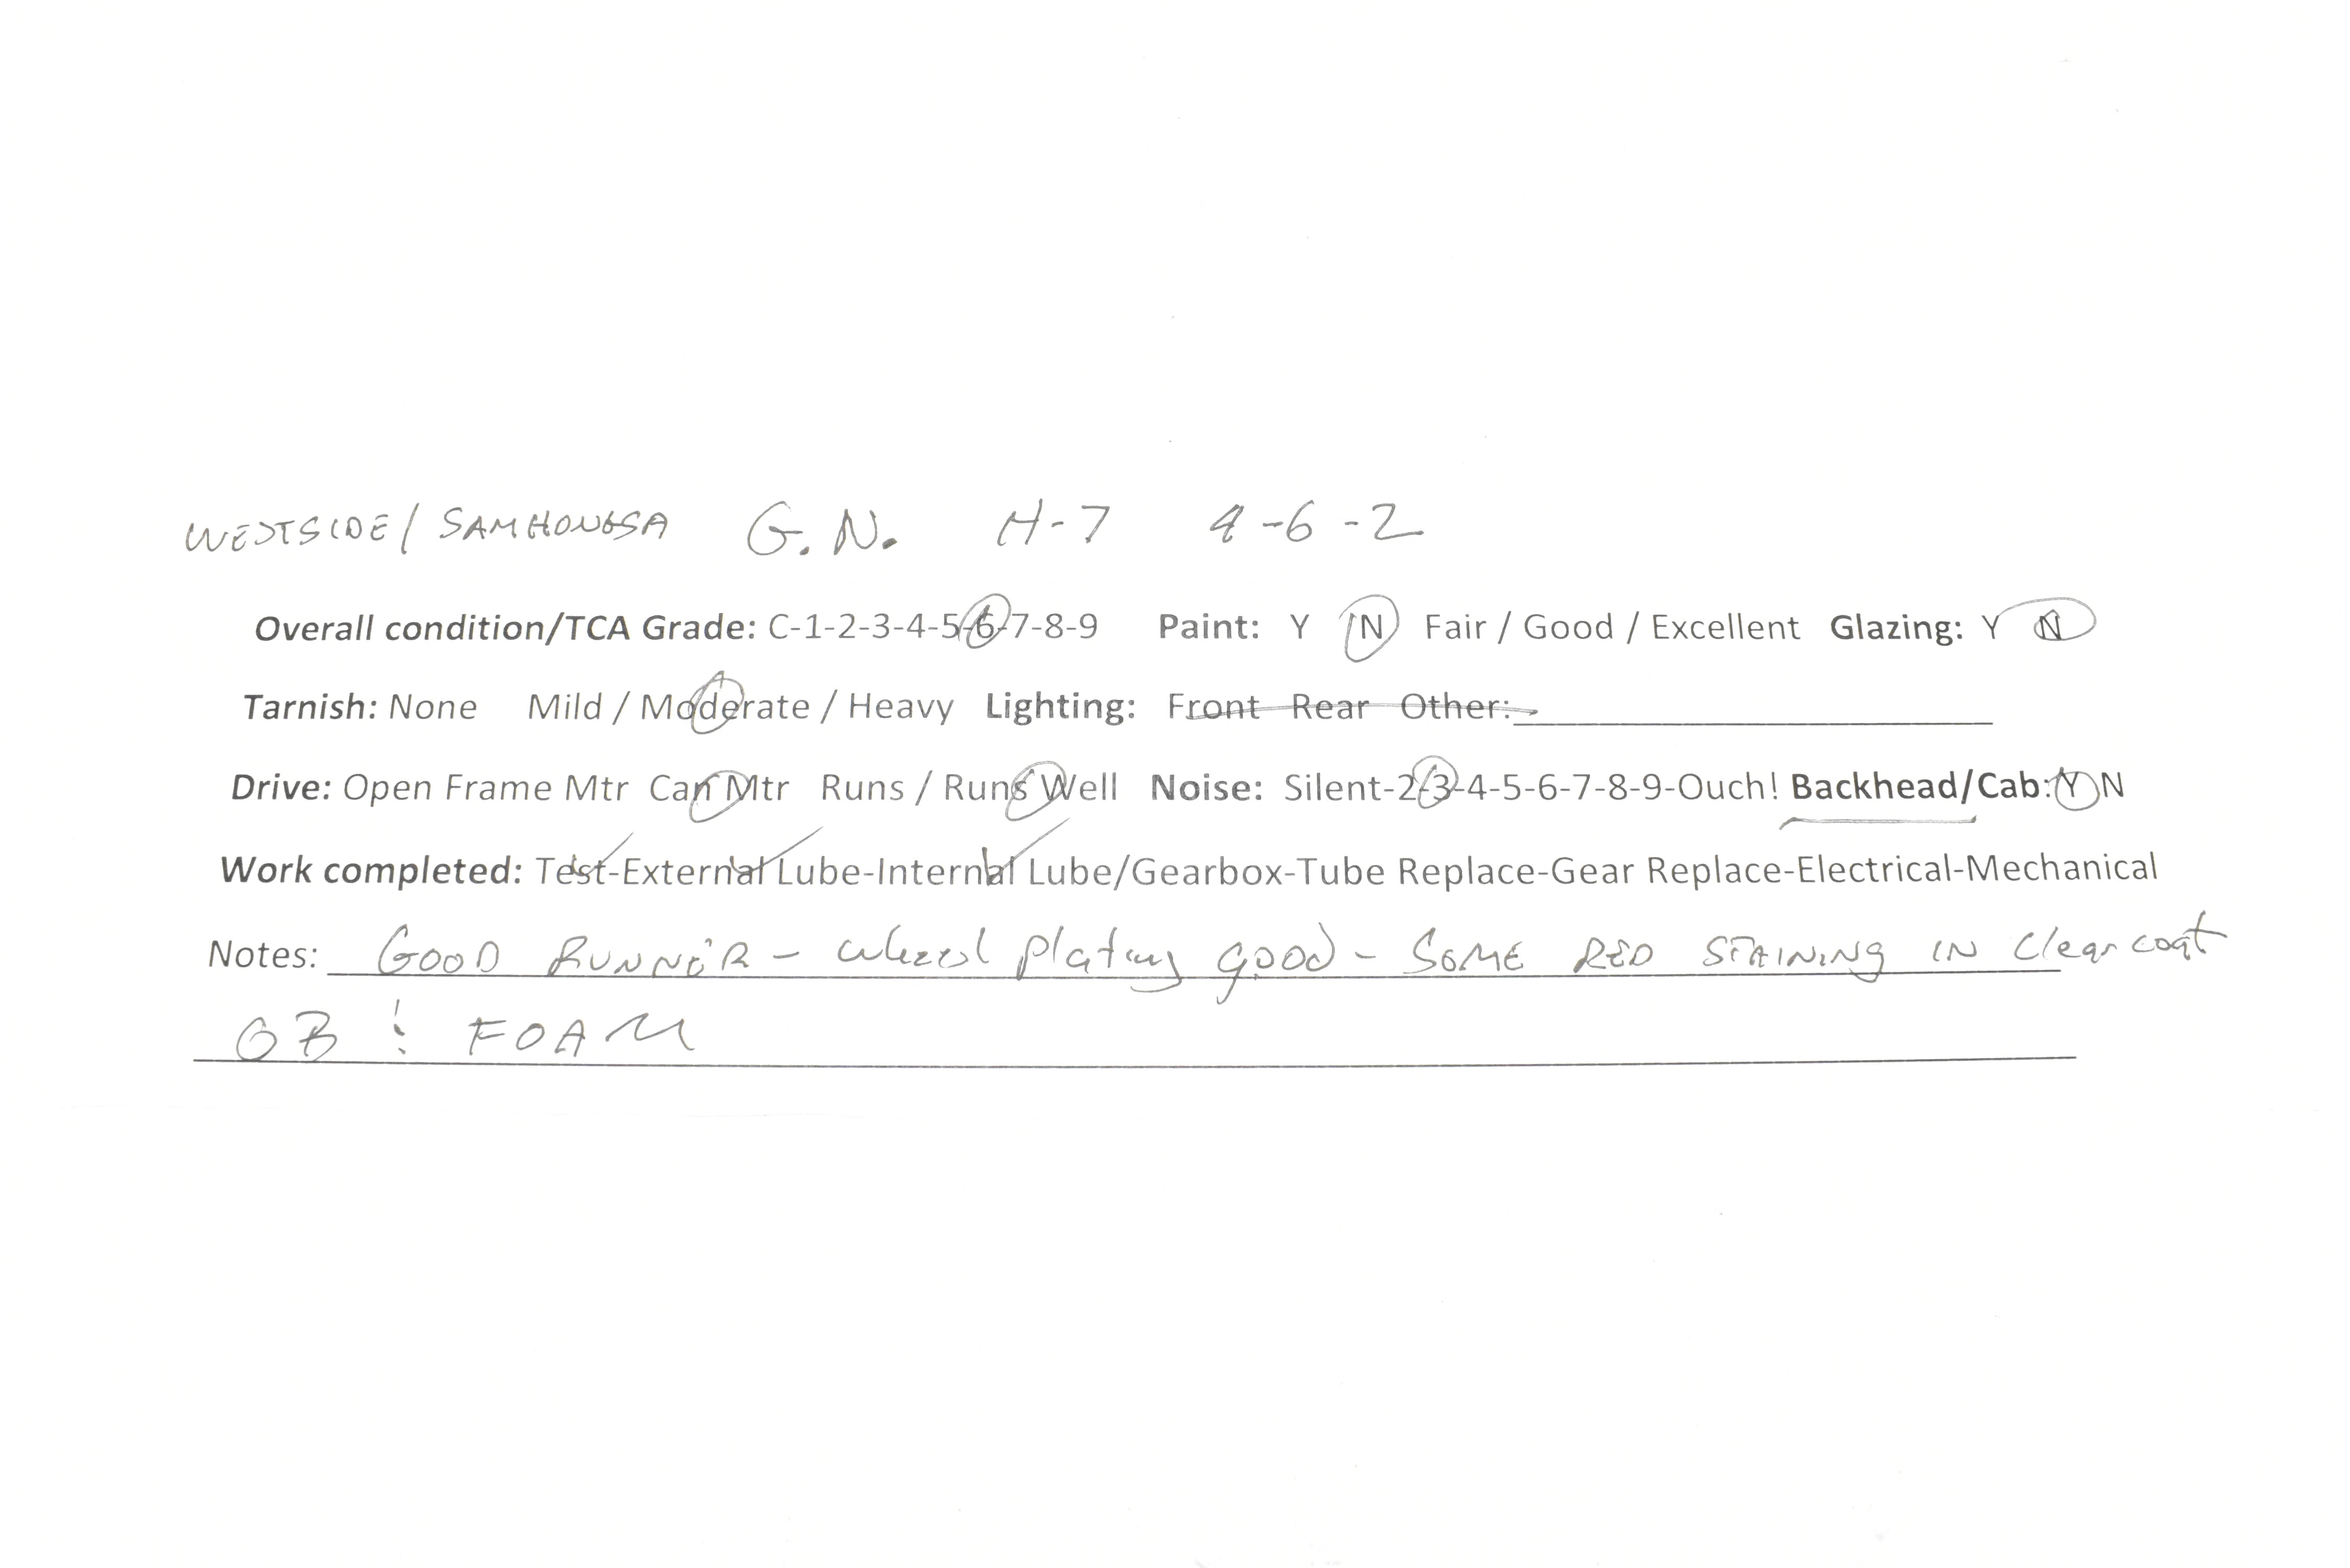 WESTSIDE/SAMHONGSA G.N. H-7 4-6-2
Overall condition/TCA Grade: C-1-2-3-4-5-6-7-8-9 Paint: Y N Fair / Good / Excellent Glazing: Y N
Tarnish: None Mild / Moderate / Heavy Lighting: Front Rear Other:
Drive: Open Frame Mtr Can Mtr Runs / Runs Well Noise: Silent-2-3-4-5-6-7-8-9-Ouch! Backhead/Cab: Y N
Work completed: Test-External Lube-Internal Lube/Gearbox-Tube Replace-Gear Replace-Electrical-Mechanical
Notes: GOOD RUNNER - wheel plating good - SOME RED STAINING IN Clearcoat
OB & FOAM